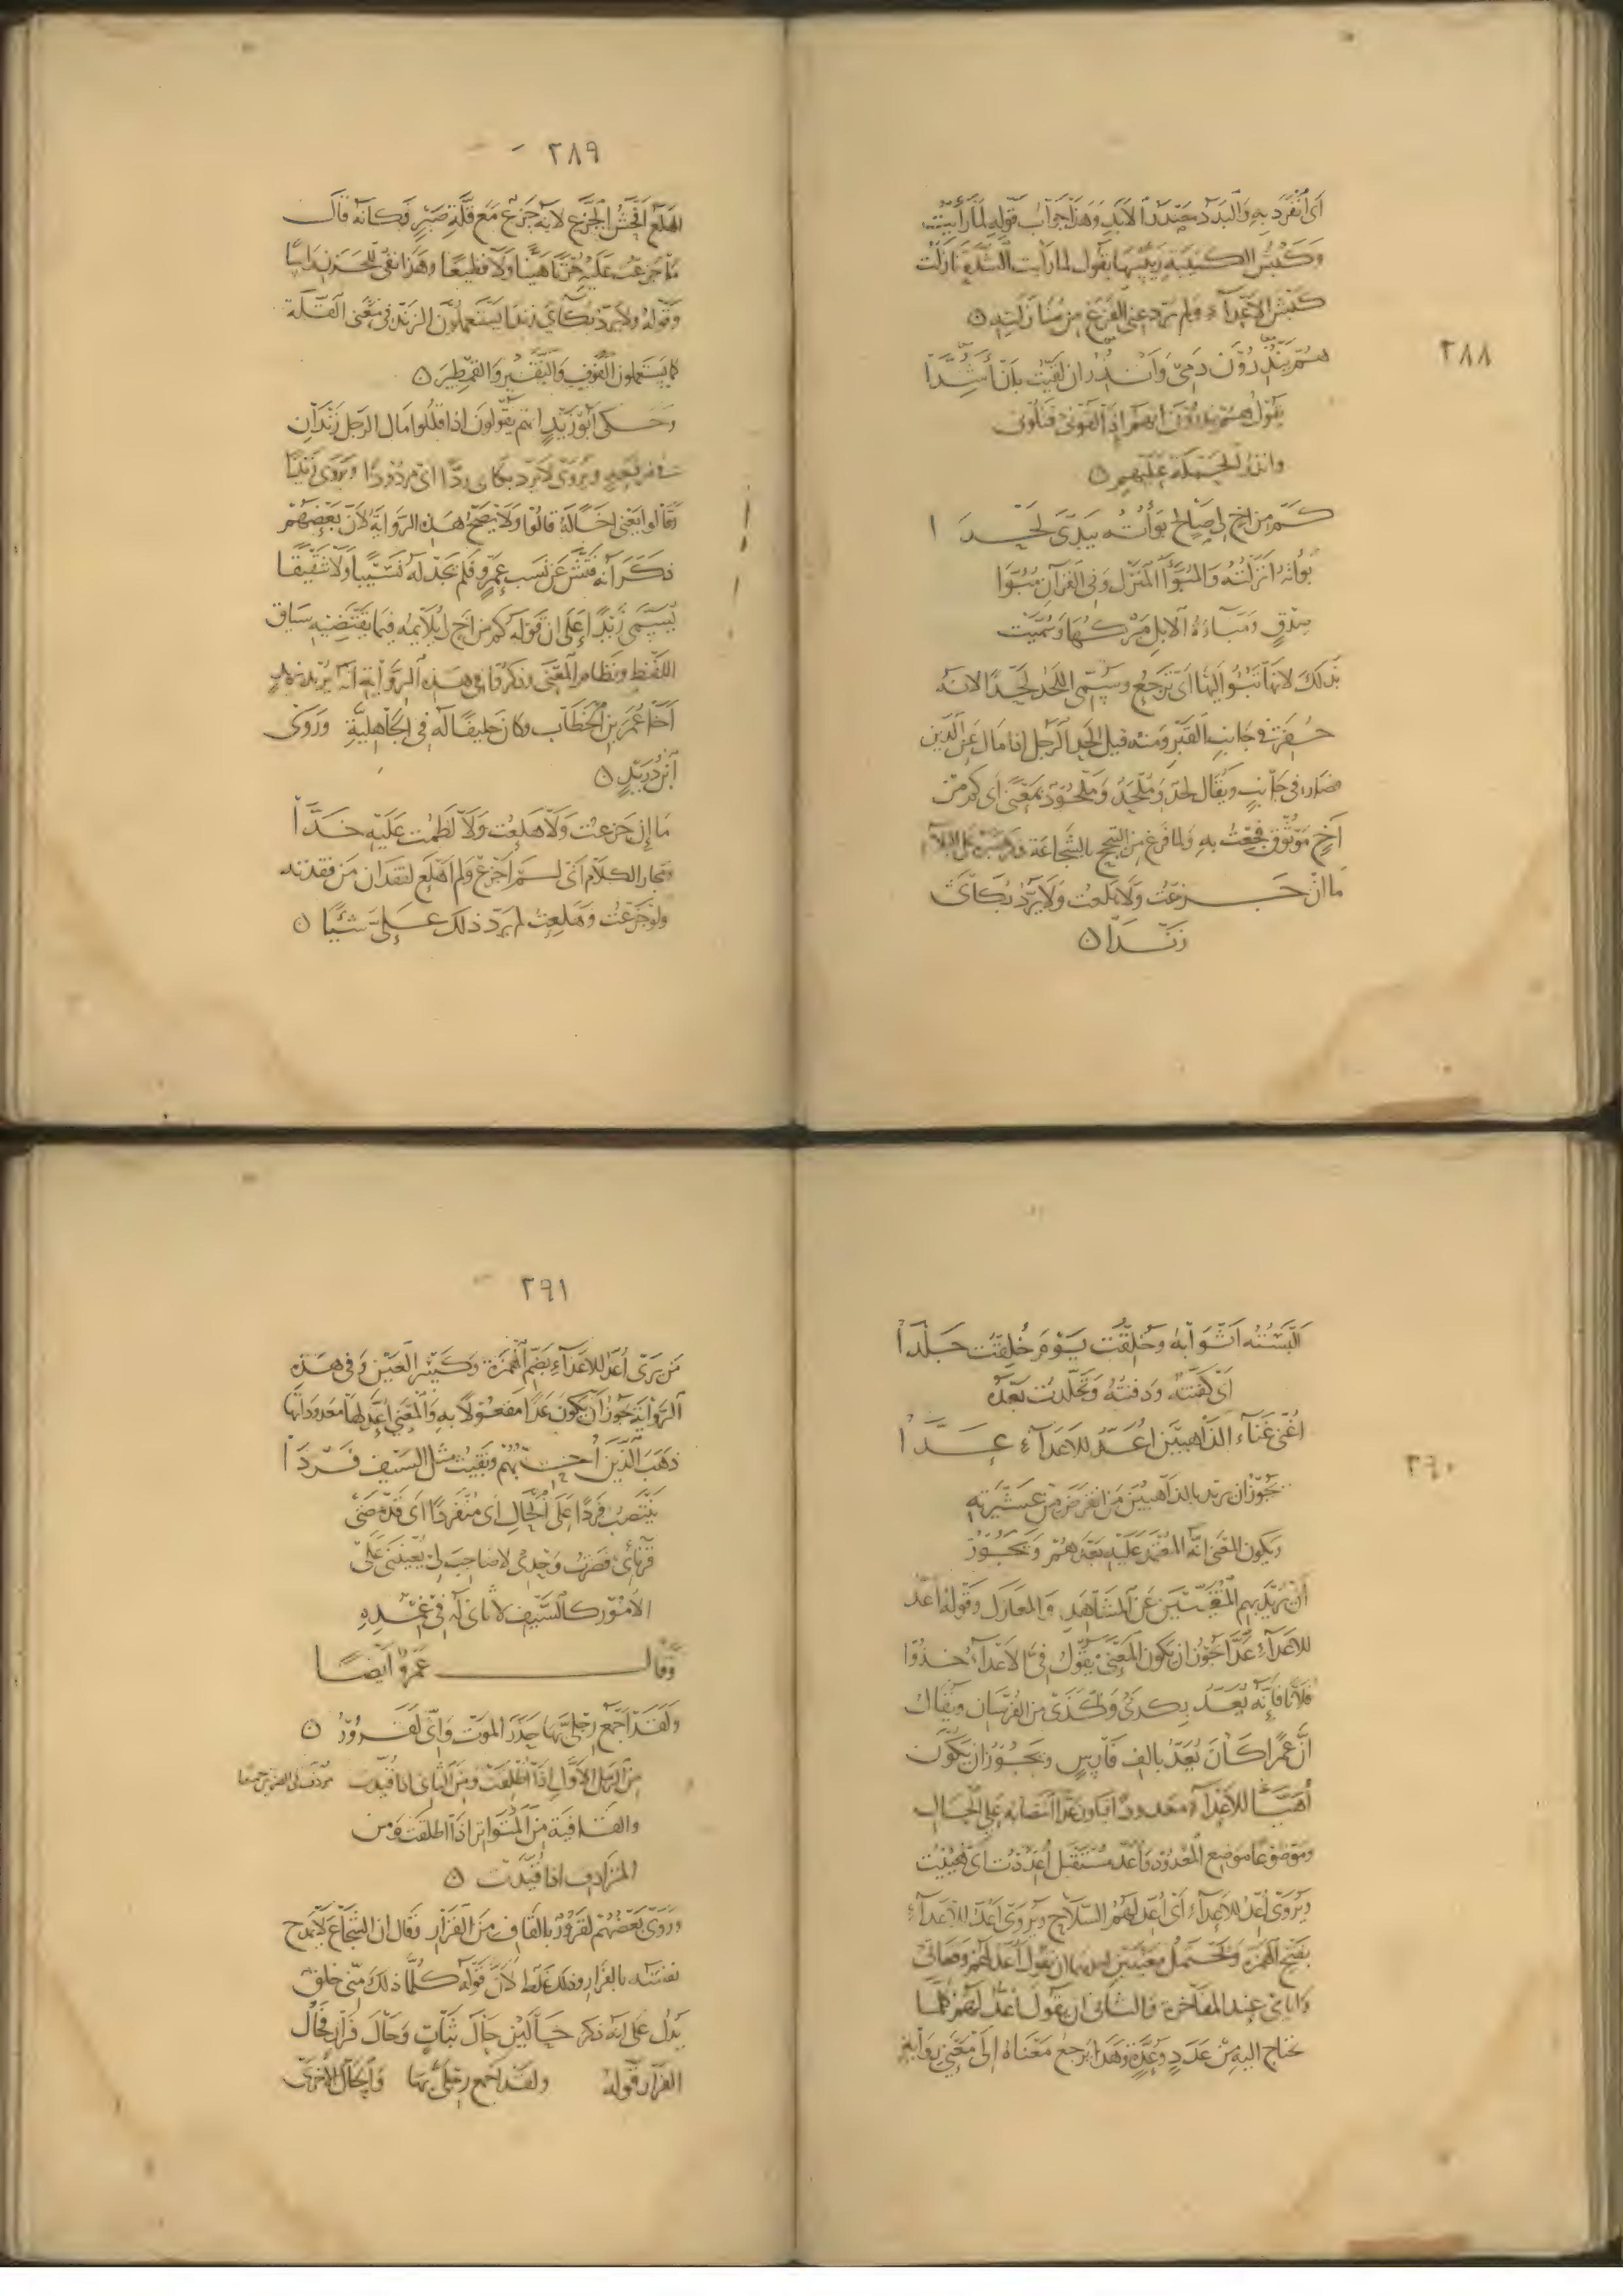 ٢٨٨
اى أنفرد به والبدد
وهذا جواب قوله لما رأيت
وكبش الكتيبة رئيسها يقول لما رأيت الشدة نازلت
كبش الأعداء ولم يردعني الفزع من منازلته
هم ينذرون دمي وأنذر ان لقيت بان أشدا
يقول هم ينذرون انهم اذا لقوني قتلوني
وانذر الحملة عليهم
كم من اخ لي صالح بوأته بيدي لحدا
بوأته انزلته والمبوأ المنزل وفي القرآن مبوأ
صدق ومباءة الابل مبركها وسميت
بذلك لانها تبوء اليها اى ترجع وسمي اللحد لحدا لانه
حفرة في جانب القبر ومنه قيل الحد الرجل اذا مال عن الدين
فصار في جانب ويقال لحد وملحد وملحود بمعنى اى كم من
اخ موثوق فجعت به ولما فرغ من التبجح بالشجاعة
ما ان جزعت ولا هلعت ولا يرد بكاى
زندا
٢٨٩
الهلع افحش الجزع لانه جزع مع قلة صبر فكانه قال
ما جزعت عليه حزنا هينا ولا فظيعا وهذا نفي للحزن راسا
وقوله ولا يرد بكاي زندا يستعملون الزند في معنى القلة
كما يستعملون الفوف والنقير والقطمير
وحكى ابو زيد انهم يقولون اذا قللوا مال الرجل زندان
في مرقعة ويروى لا يرد بكاى ردا اى مردودا ويروى زيدا
وقالوا يعني اخا له قالوا ولا يصح هذه الرواية لان بعضهم
ذكر انه فتش عن نسب عمرو فلم يجد له نسيبا ولا شقيقا
يسمى زيدا على ان قوله كم من اخ لي لا يلائمه فيما يقتضيه سياق
اللفظ ونظام المعنى وذكر في هذه الرواية انه يريد زيد
اخا عمر بن الخطاب وكان حليفا له في الجاهلية وروى
ابن دريد
ما إن جزعت ولا هلعت ولا لطمت عليه خدا
ومجاز الكلام اى لم اجزع ولم اهلع لفقدان من فقدته
ولو جزعت وهلعت لم يرد ذلك علي شيئا
٢٩٠
البسته اثوابه وخلقت يوم خلقت جلدا
اى كفنته ودفنته وتجلدت بعده
اغني غناء الذاهبين اعد للاعداء عدا
يجوز ان يريد بالذاهبين من انقرض من عشيرته
ويكون المعنى انه المعتمد عليه بعدهم ويجوز
ان يريد بهم المغيبين عن المشاهد والمعارك وقوله اعد
للاعداء عدا يجوز ان يكون المعنى يقول في الاعداء خذوا
فلانا فانه يعد بكذى وكذى من الفرسان ويقال
ان عمرا كان يعد بالف فارس ويجوز ان يكون
أهيا للاعداء معدودا فيكون عدا انتصابه على الحال
وموضوعا موضع المعدود واعد مستقبل اعددت اى هيئت
ويروى اعد للاعداء اى اعد لهم السلاح ويروى اعد للاعداء
بفتح الهمزة ويحتمل معنيين احدهما ان يقول اعد لهم وقعاتي
وايامي عند المفاخرة والثاني ان يقول اعد لهم كلما
يحتاج اليه من عدد وعدة وهذا يرجع معناه الى معنى رواية
٢٩١
من يروى اعد للاعداء بضم الهمزة وكسر العين وفي هذه
الرواية يجوز ان يكون عدا مفعولا به والمعنى اعد لها معدوداتها
ذهب الذين احبهم وبقيت مثل السيف فردا
ينتصب فردا على الحال اى منفردا اى قد مضى
قرنائي فصرت وحدي لا صاحب لي يعينني على
الامور كالسيف لا ثاني له في غمده
وقال عمرو ايضا
ولقد اجمع رجلي بها حذر الموت واني لفرور
من الرمل الاول اذا اطلقت ومن الثاني اذا قيدت
والقافية من المتواتر اذا اطلقت ومن
المترادف اذا قيدت
وروى بعضهم لقرور بالقاف من القرار وقال ان الشجاع لا يمدح
نفسه بالفرار وذلك غلط لان قوله كلما ذلك مني خلق
يدل على انه ذكر حالين حال ثبات وحال فرار فحال
الفرار قوله ولقد اجمع رجلي بها والحال الاخرى